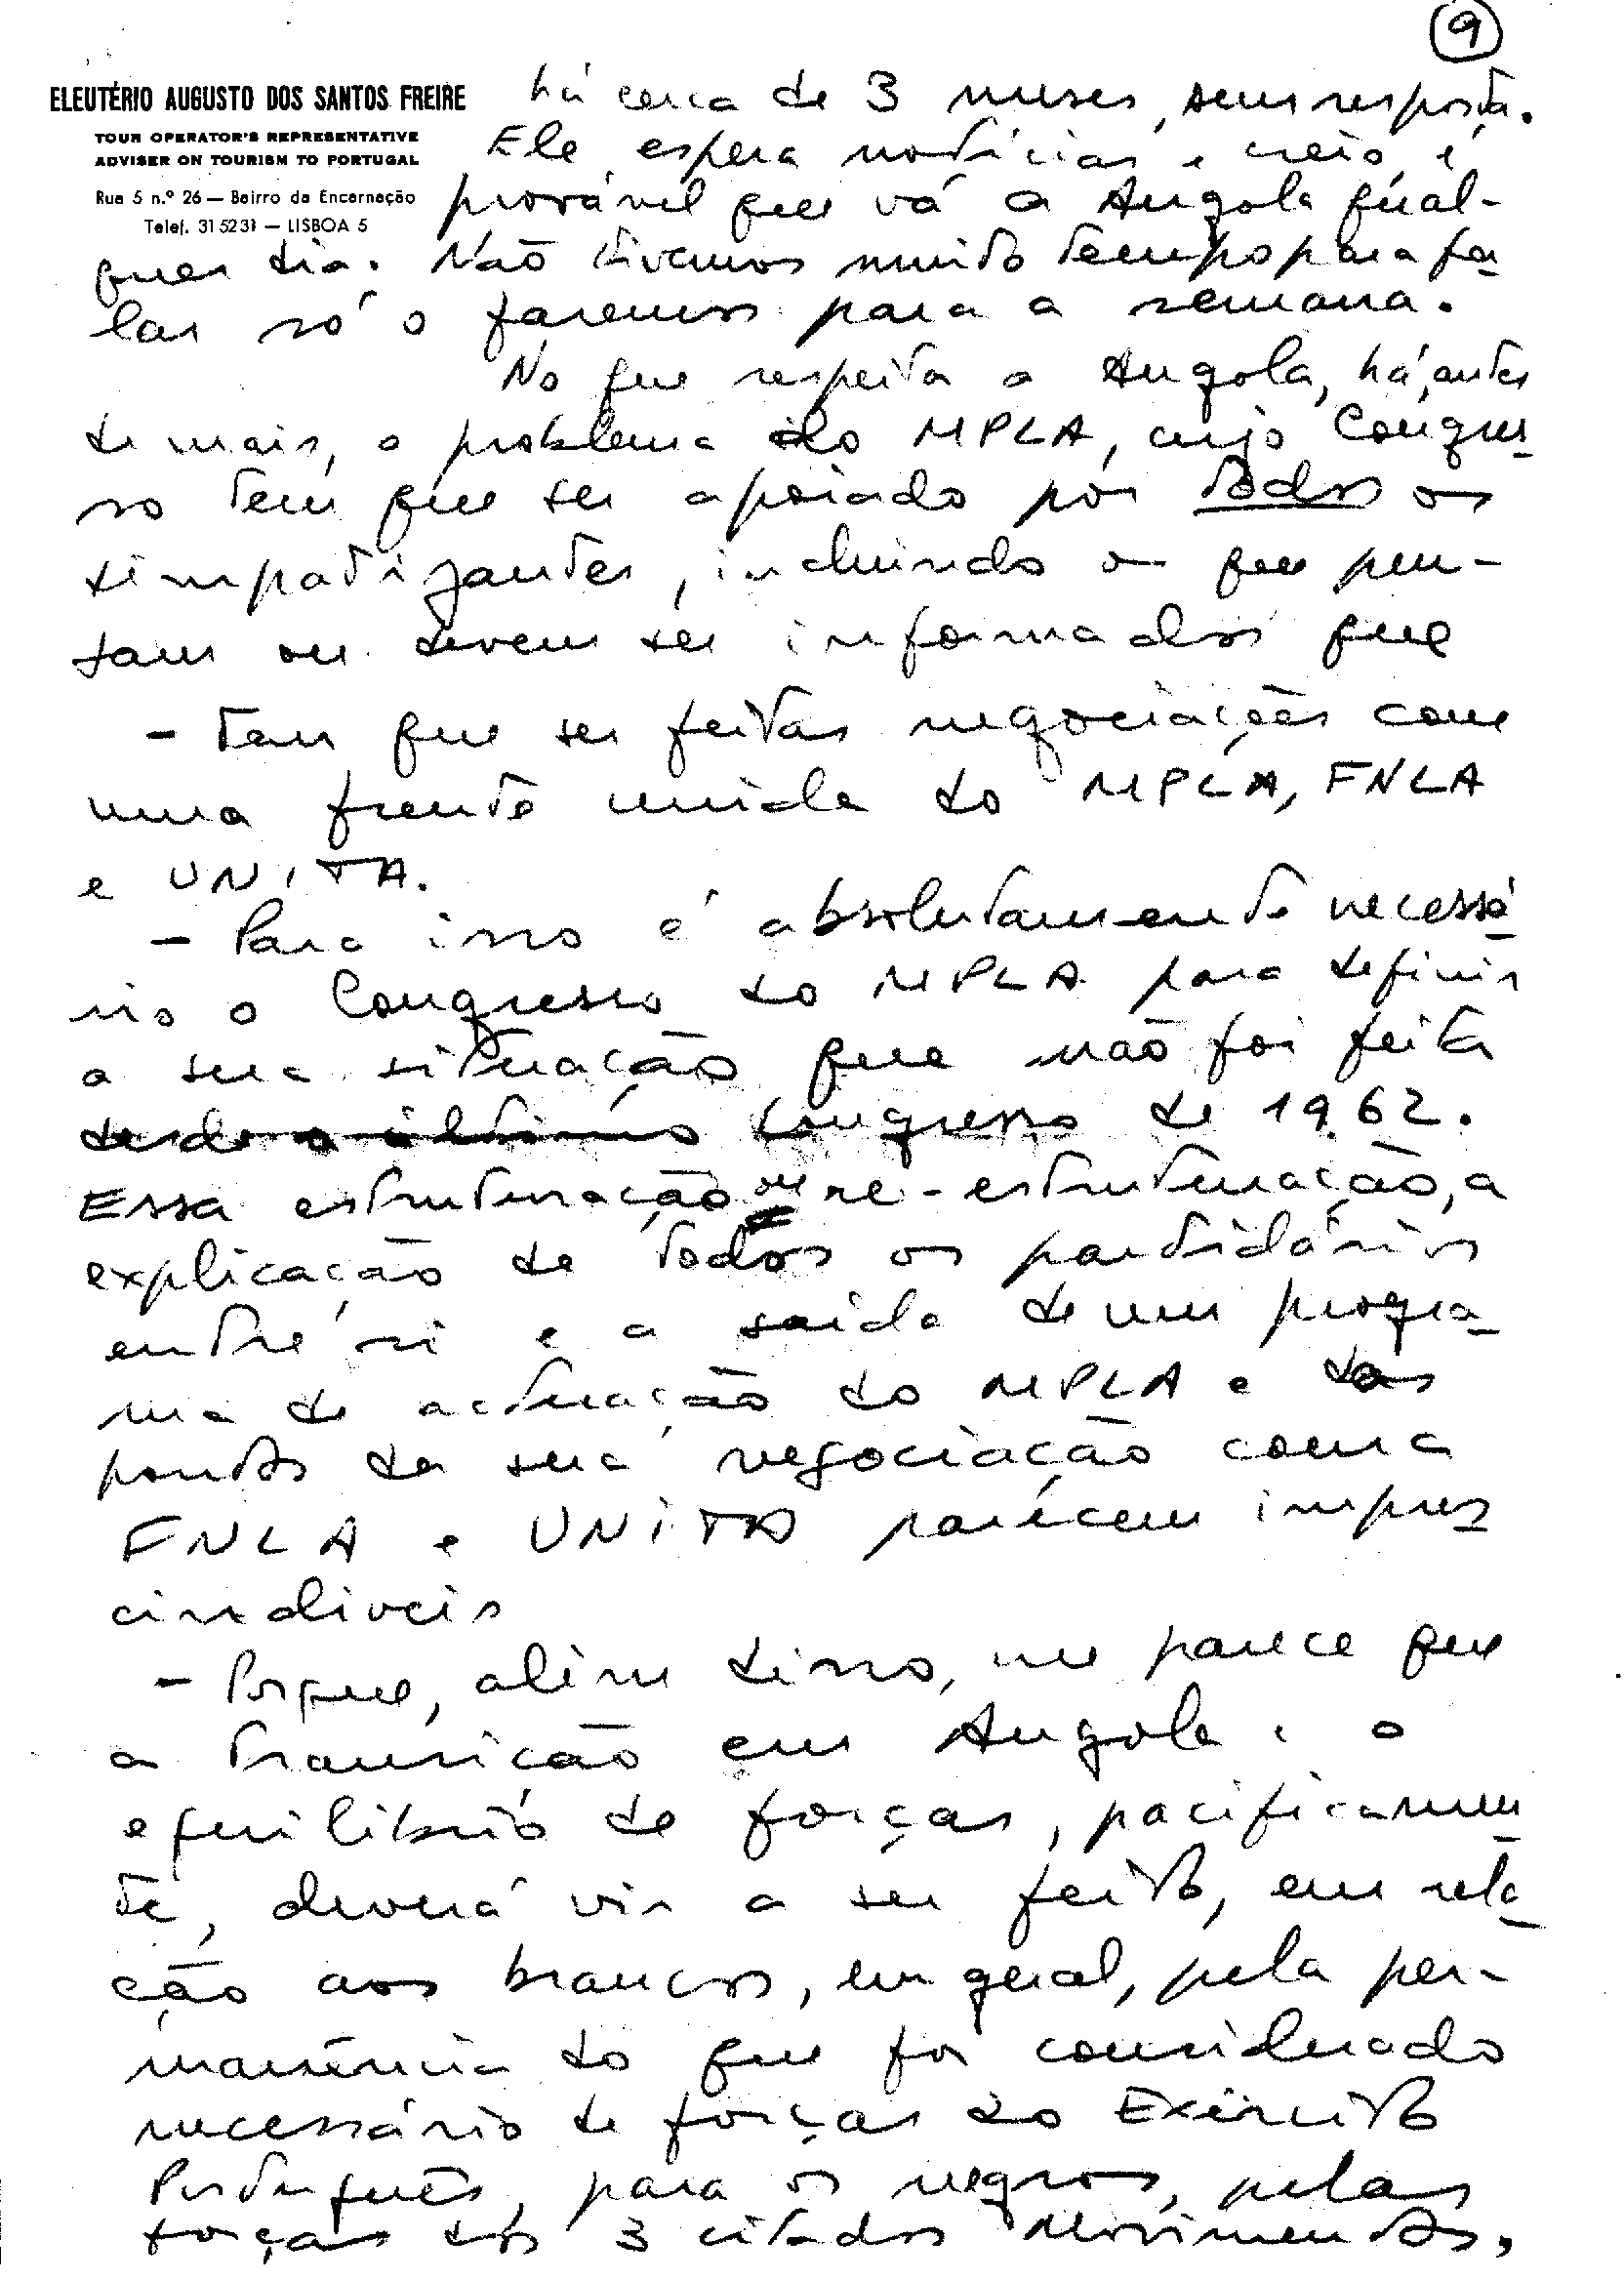 9
ELEUTÉRIO AUGUSTO DOS SANTOS FREIRE
TOUR OPERATOR'S REPRESENTATIVE
ADVISER ON TOURISM TO PORTUGAL
Rua 5 n.º 26 — Bairro da Encarnação
Telef. 315231 — LISBOA 5
há cerca de 3 meses, sem resposta.
Ele espera notícias e creio, é
provável que vá a Angola qual-
quer dia. Não tivemos muito tempo para fa-
lar só o faremos para a semana.
No que respeita a Angola, há, antes
de mais, o problema do MPLA, cujo Congres-
so tem que ser apoiado por todos os
simpatizantes, incluindo os que pen-
sam ou devem ser informados que
- Tem que ser feitas negociações com
uma frente unida do MPLA, FNLA
e UNITA.
- Para isso é absolutamente necessá-
rio o Congresso do MPLA para definir
a sua situação que não foi feita
desde o último Congresso de 1962.
Essa estruturação ou re-estruturação, a
explicação de todos os partidários
entre si e a saída de um progra-
ma de actuação do MPLA e dos
pontos da sua negociação com a
FNLA e UNITA parecem impres
cindiveis
- Porque, além disso, me parece que
a transição em Angola e o
equilibrio de forças, pacificamen-
te, deverá vir a ser feito, em rela-
ção aos brancos, em geral, pela per-
manência do que for considerado
necessário de forças do Exército
Português, para os negros, pelas
forças dos 3 citados Movimentos,